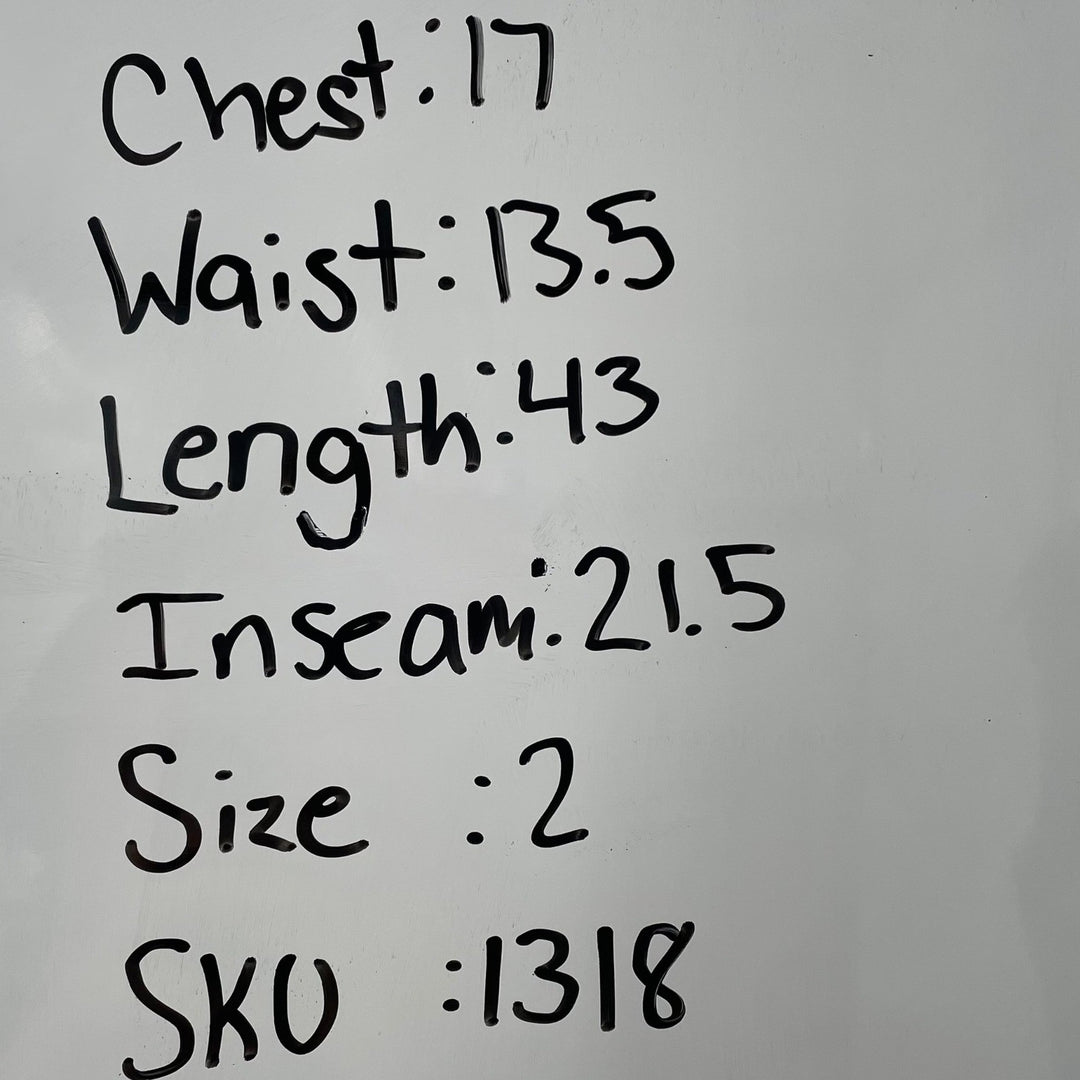 Chest:17
Waist:13.5
Length:43
Inseam:21.5
Size :2
SKU :1318